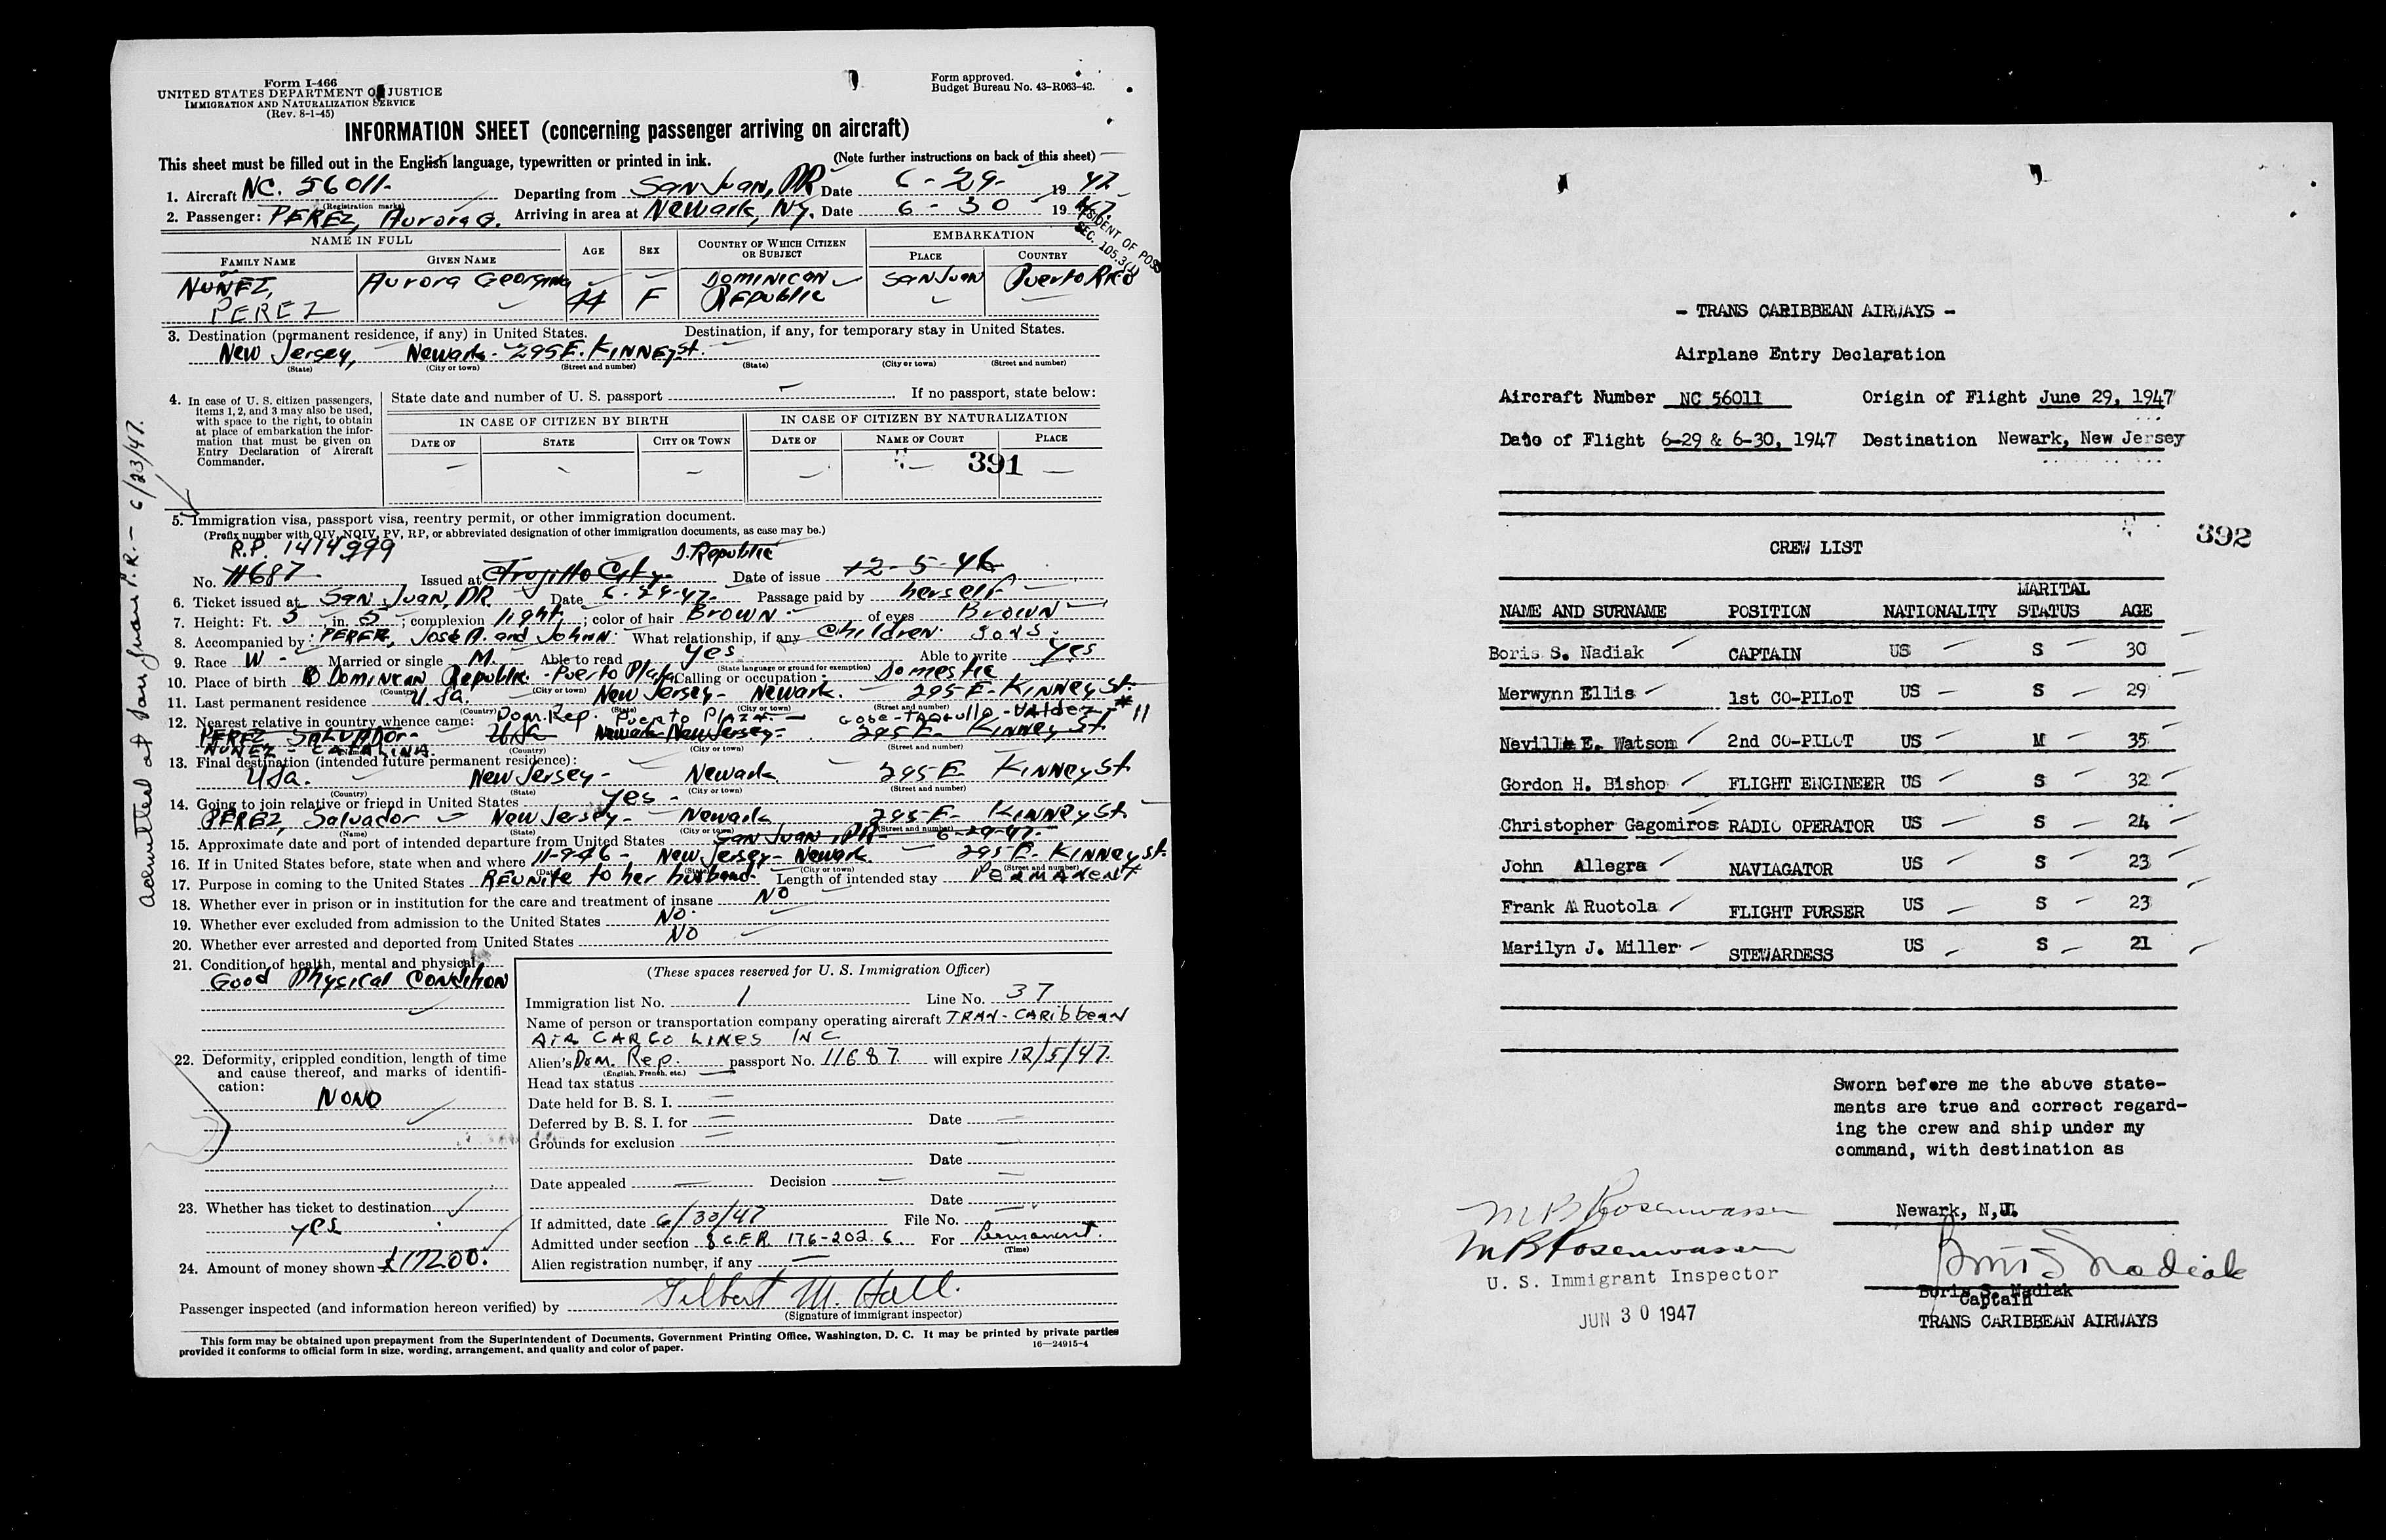 Form I-466
UNITED STATES DEPARTMENT OF JUSTICE
IMMIGRATION AND NATURALIZATION SERVICE
(Rev. 8-1-45)
Form approved.
Budget Bureau No. 43-R063-42.
INFORMATION SHEET (concerning passenger arriving on aircraft)
This sheet must be filled out in the English language, typewritten or printed in ink. (Note further instructions on back of this sheet)
1. Aircraft NC. 56011- Departing from San Juan, PR Date 6-29- 1947
(Registration marks)
2. Passenger: PEREZ, Aurora G. Arriving in area at Newark, NY. Date 6-30 1947.
RESIDENT OF POSS
SEC. 105.3(1)
NAME IN FULL AGE SEX COUNTRY OF WHICH CITIZEN OR SUBJECT EMBARKATION
FAMILY NAME GIVEN NAME PLACE COUNTRY
NUÑEZ, Aurora Georgina 44 F DOMINICAN San Juan Puerto Rico
PEREZ Republic
3. Destination (permanent residence, if any) in United States. Destination, if any, for temporary stay in United States.
New Jersey, Newark- 295 E. KINNEY St.
(State) (City or town) (Street and number) (State) (City or town) (Street and number)
4. In case of U. S. citizen passengers, items 1, 2, and 3 may also be used, with space to the right, to obtain at place of embarkation the information that must be given on Entry Declaration of Aircraft Commander.
State date and number of U. S. passport - If no passport, state below:
IN CASE OF CITIZEN BY BIRTH IN CASE OF CITIZEN BY NATURALIZATION
DATE OF STATE CITY OR TOWN DATE OF NAME OF COURT PLACE
391
5. Immigration visa, passport visa, reentry permit, or other immigration document.
(Prefix number with QIV, NQIV, PV, RP, or abbreviated designation of other immigration documents, as case may be.)
R.P. 1414999 D. Republic
No. 11687 Issued at Trujillo City Date of issue 12-5-46
6. Ticket issued at San Juan, PR Date 6-24-47- Passage paid by herself
7. Height: Ft. 5, in. 5; complexion light; color of hair BROWN of eyes BROWN
8. Accompanied by: PEREZ, José A. and John N. What relationship, if any Children. sons.
9. Race W- Married or single M. Able to read yes Able to write yes
(State language or ground for exemption)
10. Place of birth Dominican Republic - Puerto Plata Calling or occupation: Domestic
(Country) (City or town)
11. Last permanent residence U.Sa. New Jersey- Newark. 295 E- KINNEY St.
(Country) (State) (City or town) (Street and number)
12. Nearest relative in country whence came: Dom. Rep. Puerto Plata - Valdez #11
PEREZ SALVADOR- USa Newark New Jersey- 295 E- KINNEY St.
NUÑEZ - CATALINA.
(Name) (Country) (City or town) (Street and number)
13. Final destination (intended future permanent residence):
USa. New Jersey- Newark 295 E- KINNEY St
(Country) (State) (City or town) (Street and number)
14. Going to join relative or friend in United States yes-
PEREZ, Salvador New Jersey- Newark 295 E- KINNEY St
(Name) (State) (City or town) (Street and number)
15. Approximate date and port of intended departure from United States San Juan, PR- 6-29-47-
16. If in United States before, state when and where 11-946-, New Jersey- Newark 295 E- KINNEY St.
(Date) (State) (City or town) (Street and number)
17. Purpose in coming to the United States REUNITE to her husband. Length of intended stay PERMANENT
18. Whether ever in prison or in institution for the care and treatment of insane NO
19. Whether ever excluded from admission to the United States NO.
20. Whether ever arrested and deported from United States NO
21. Condition of health, mental and physical
Good Physical Condition
22. Deformity, crippled condition, length of time and cause thereof, and marks of identification:
NONO
23. Whether has ticket to destination
yes
24. Amount of money shown $17200.
(These spaces reserved for U. S. Immigration Officer)
Immigration list No. 1 Line No. 37
Name of person or transportation company operating aircraft TRAN-CARIbbEAN
AIR CARGO LINES INC
Alien's Dom. Rep. passport No. 11687. will expire 12/5/47.
(English, French, etc.)
Head tax status
Date held for B. S. I.
Deferred by B. S. I. for Date
Grounds for exclusion
Date
Date appealed Decision
Date
If admitted, date 6/30/47 File No.
Admitted under section 8 C.F.R. 176-202.6 For Permanent.
(Time)
Alien registration number, if any
Passenger inspected (and information hereon verified) by Gilbert M. Hall.
(Signature of immigrant inspector)
This form may be obtained upon prepayment from the Superintendent of Documents, Government Printing Office, Washington, D. C. It may be printed by private parties
provided it conforms to official form in size, wording, arrangement, and quality and color of paper. 16—24915-4
admitted at San Juan P.R. - 6/23/47.
- TRANS CARIBBEAN AIRWAYS -
Airplane Entry Declaration
Aircraft Number NC 56011 Origin of Flight June 29, 1947
Date of Flight 6-29 & 6-30, 1947 Destination Newark, New Jersey
392
CREW LIST
NAME AND SURNAME POSITION NATIONALITY MARITAL STATUS AGE
Boris S. Nadiak CAPTAIN US S 30
Merwynn Ellis 1st CO-PILoT US S 29
Neville E. Watsom 2nd CO-PILOT US M 35
Gordon H. Bishop FLIGHT ENGINEER US S 32
Christopher Gagomiros RADIO OPERATOR US S 24
John Allegra NAVIAGATOR US S 23
Frank A Ruotola FLIGHT PURSER US S 23
Marilyn J. Miller STEWARDESS US S 21
Sworn before me the above state-
ments are true and correct regard-
ing the crew and ship under my
command, with destination as
Newark, N.J.
M B Rosenwasser
M B Rosenwasser
U. S. Immigrant Inspector
JUN 30 1947
Boris S Nadiak
Boris S. Nadiak
Captain
TRANS CARIBBEAN AIRWAYS